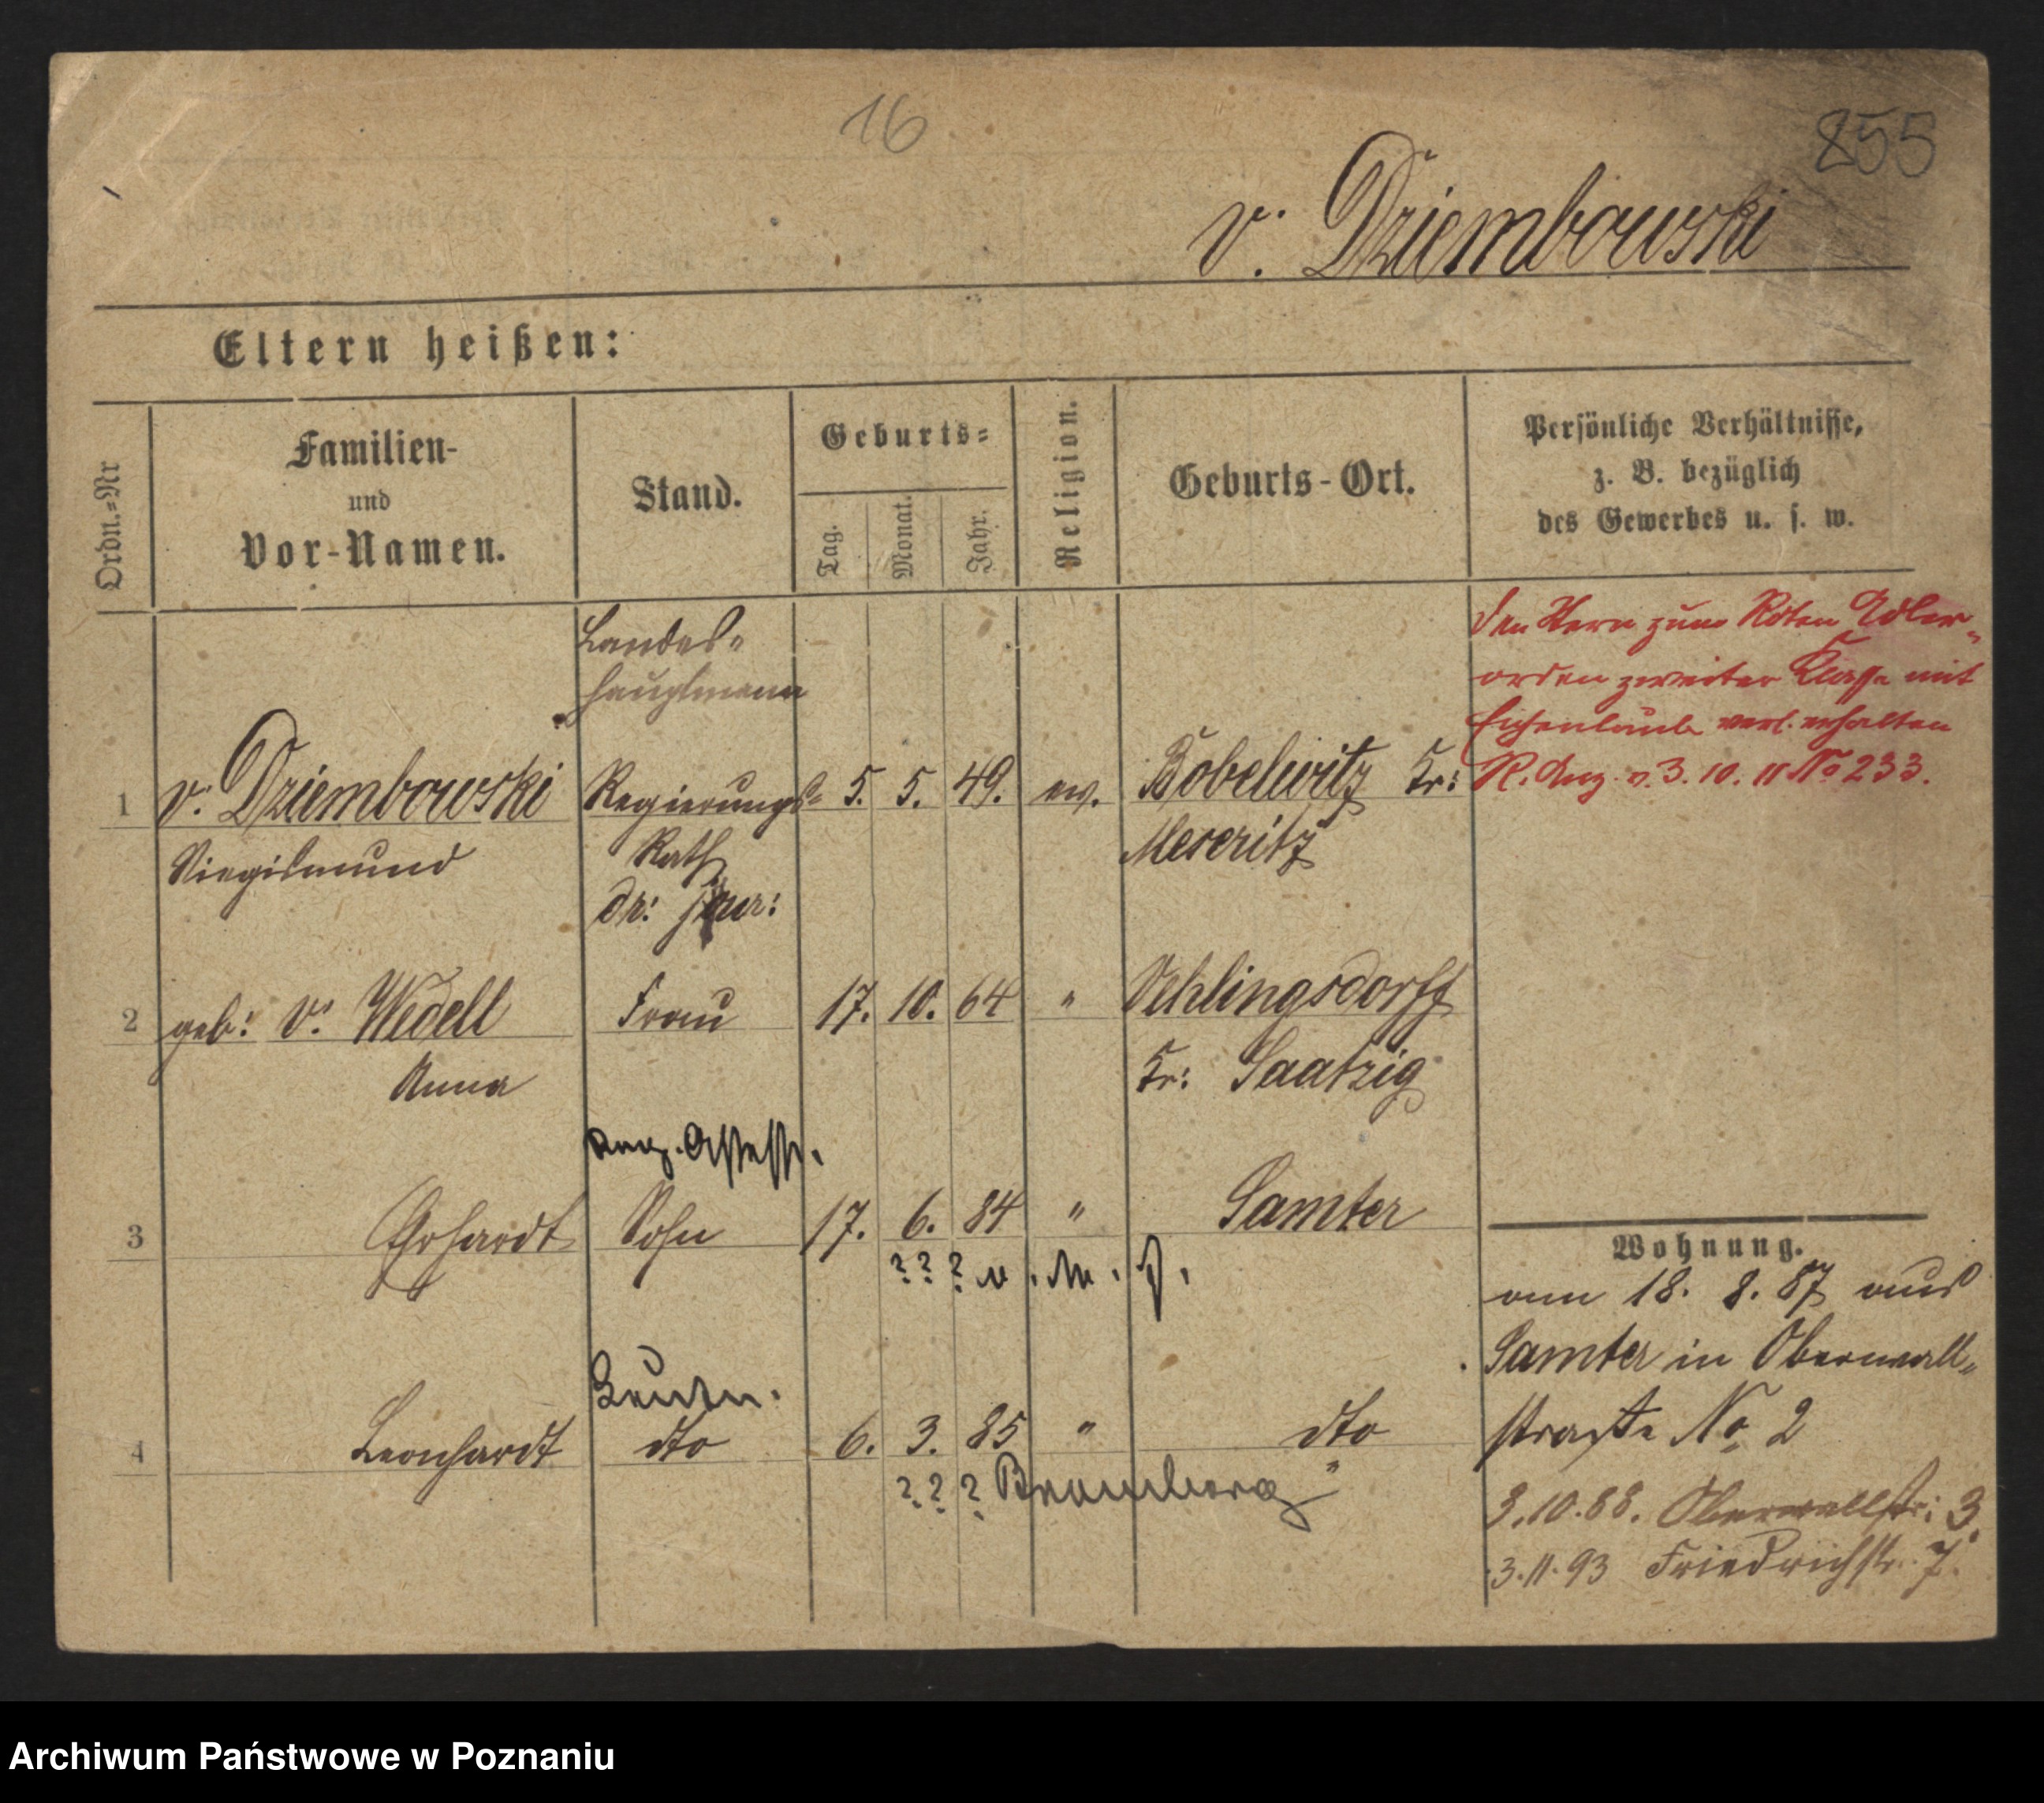 16
855
v. Dziembowski
Eltern heißen:
Ordn.-Nr
Familien-
und
Vor-Namen.
Stand.
Geburts-
Tag.
Monat.
Jahr.
Religion.
Geburts-Ort.
Persönliche Verhältnisse,
z. B. bezüglich
des Gewerbes u. s. w.
den Stern zum Roten Adler-
orden zweiter Klasse mit
Eichenlaub verl. erhalten
R. Anz. v. 3. 10. 11 No 233.
Landes-
hauptmann
1 v. Dziembowski Regierungs- 5. 5. 49. ev. Bobelwitz Kr:
Siegismund Rath Meseritz
dr: jur:
2 geb: v. Wedell Frau 17. 10. 64 " Vehlingsdorff
Anna Kr: Saatzig
Reg. Assess.
3 Erhardt Sohn 17. 6. 84 " Samter
? ? ?
Leutn.
4 Leonhardt dto 6. 3. 85 " dto
? ? ? Bromberg
Wohnung.
am 18. 8. 87 aus
Samter in Oberwall-
straße No 2
3.10.88. Oberwallstr: 3.
3.11.93 Friedrichstr. 7.
Archiwum Państwowe w Poznaniu